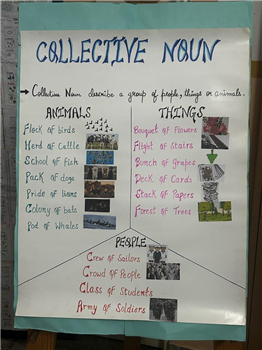 COLLECTIVE NOUN
→ Collective Noun describe a group of people, things or animals.
ANIMALS
Flock of birds
Herd of Cattle
School of Fish
Pack of dogs
Pride of lions
Colony of bats
Pod of Whales
THINGS
Bouquet of Flowers
Flight of Stairs
Bunch of Grapes
Deck of Cards
Stack of Papers
Forest of Trees
PEOPLE
Crew of Sailors
Crowd of People
Class of Students
Army of Soldiers